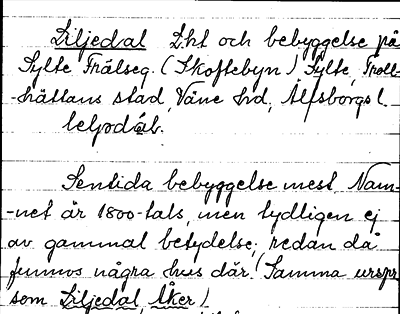 Liljedal Lht och bebyggelse på
Sylte Frälseg. (Skoftebyn) Sylte, Troll-
-hättans stad, Väne hd, Älfsborgs l.
beljodáb.
Sentida bebyggelse mest. Nam-
-net är 1800-tals, men tydligen ej
av gammal betydelse; redan då
funnos några hus där. (Samma urspr
som Liljedal, Åker)